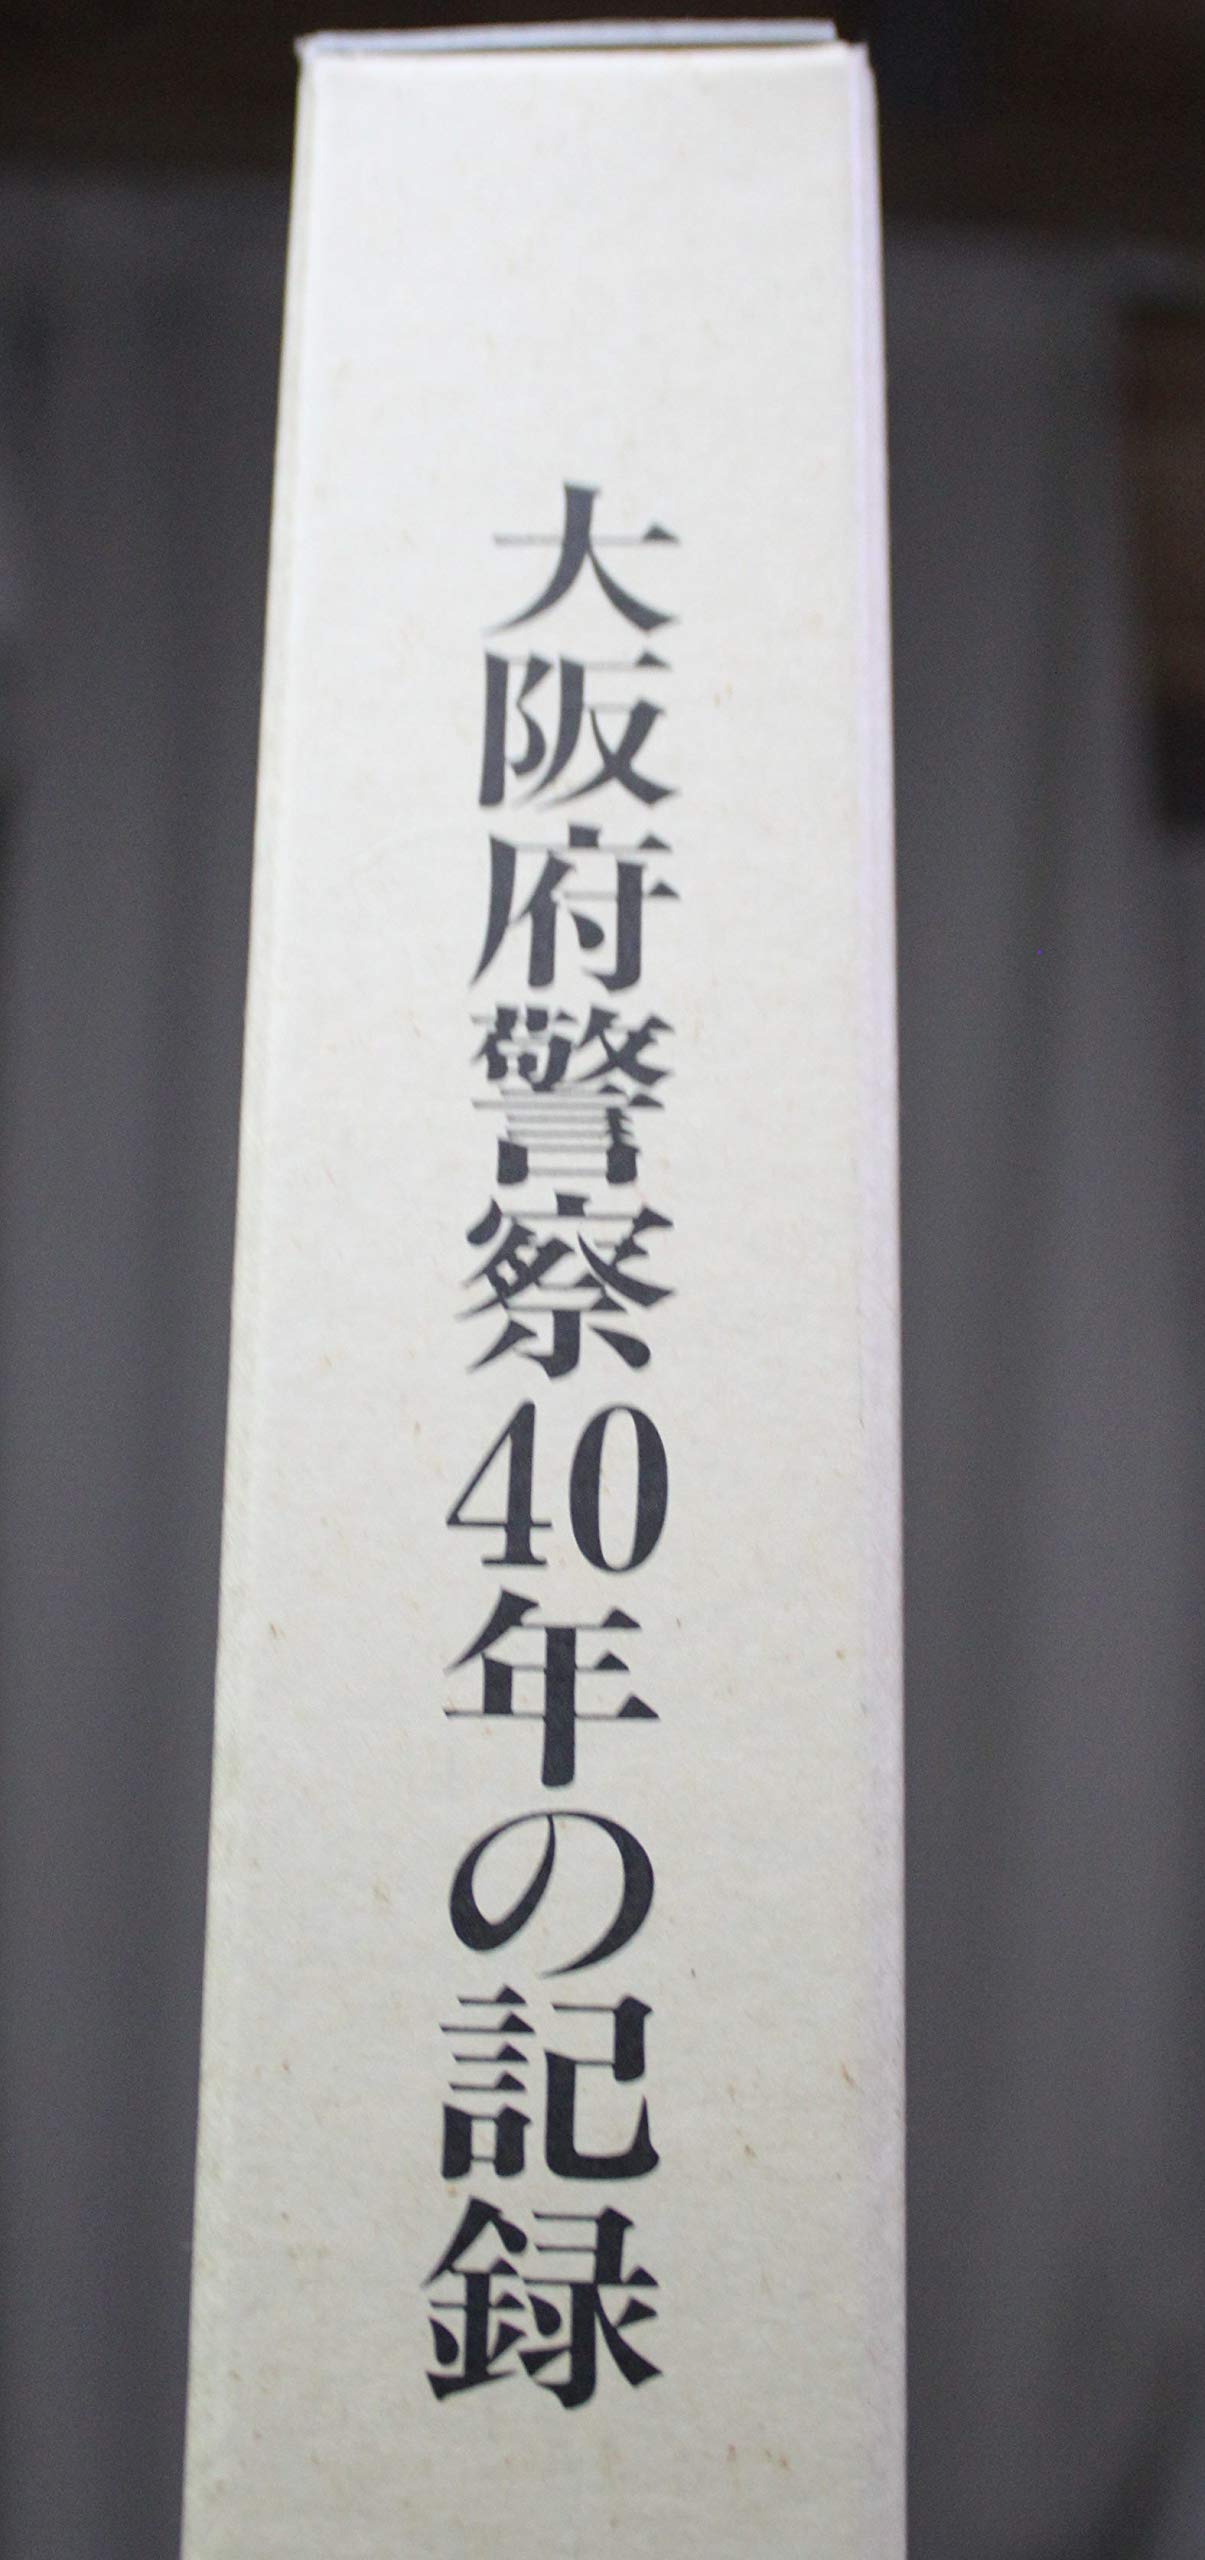 大阪府警察40年の記録